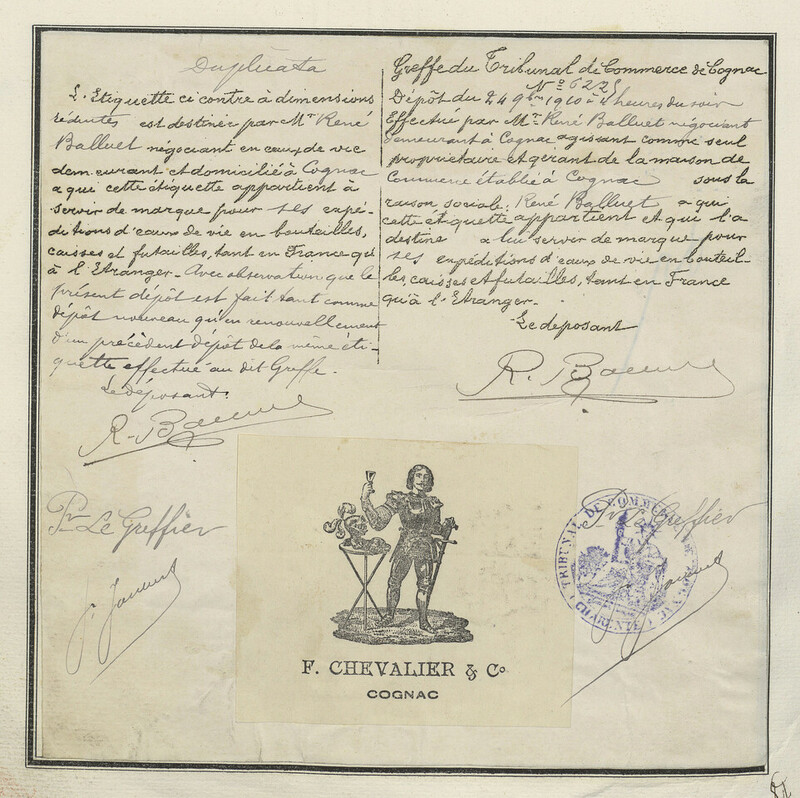 Duplicata
L'Etiquette ci contre à dimensions
réduites est destinée par Mr René
Balluet négociant en eaux de vie
demeurant et domicilié à Cognac
a qui cette étiquette appartient à
servir de marque pour ses expé-
ditions d'eaux de vie en bouteilles,
caisses et futailles, tant en France qu'
à l'Etranger. Avec observation que le
présent dépôt est fait tant comme
dépôt nouveau qu'en renouvellement
d'un précédent dépôt de la même éti-
quette effectué au dit Greffe.
Le déposant.
Pr Le Greffier
Greffe du Tribunal de Commerce de Cognac
Dépôt du 24 9bre 1910 à 4 heures du soir
Effectué par Mr René Balluet négociant
demeurant à Cognac agissant comme seul
propriétaire et gérant de la maison de
Commerce établie à Cognac sous la
raison sociale: René Balluet a qui
cette etiquette appartient et qui l'a
destine a lui servir de marque pour
ses expéditions d'eaux de vie en bouteil-
les, caisses et futailles, tant en France
qu'à l'Etranger.
Le deposant
Pr Le Greffier
TRIBUNAL DE COMMERCE DE COGNAC
CHARENTE
F. CHEVALIER & Co
COGNAC